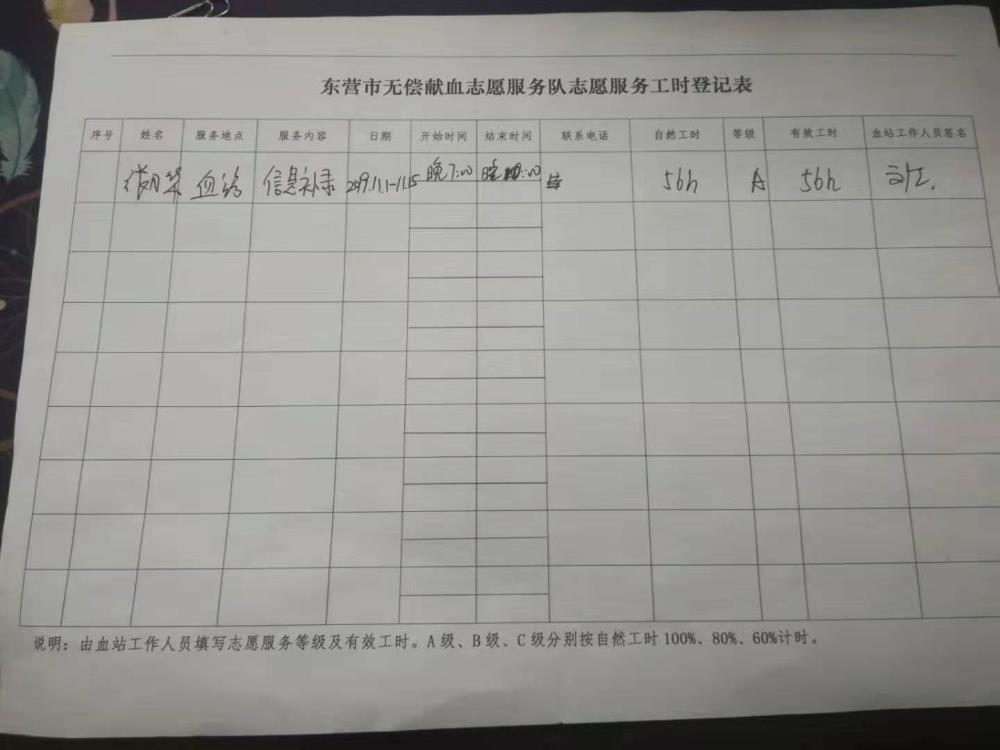 东营市无偿献血志愿服务队志愿服务工时登记表
序号 姓名 服务地点 服务内容 日期 开始时间 结束时间 联系电话 自然工时 等级 有效工时 血站工作人员签名
血站 信息补录 2019.11.1-11.15 晚7:00 晚 :00 56h A 56h
说明：由血站工作人员填写志愿服务等级及有效工时。A级、B级、C级分别按自然工时100%、80%、60%计时。